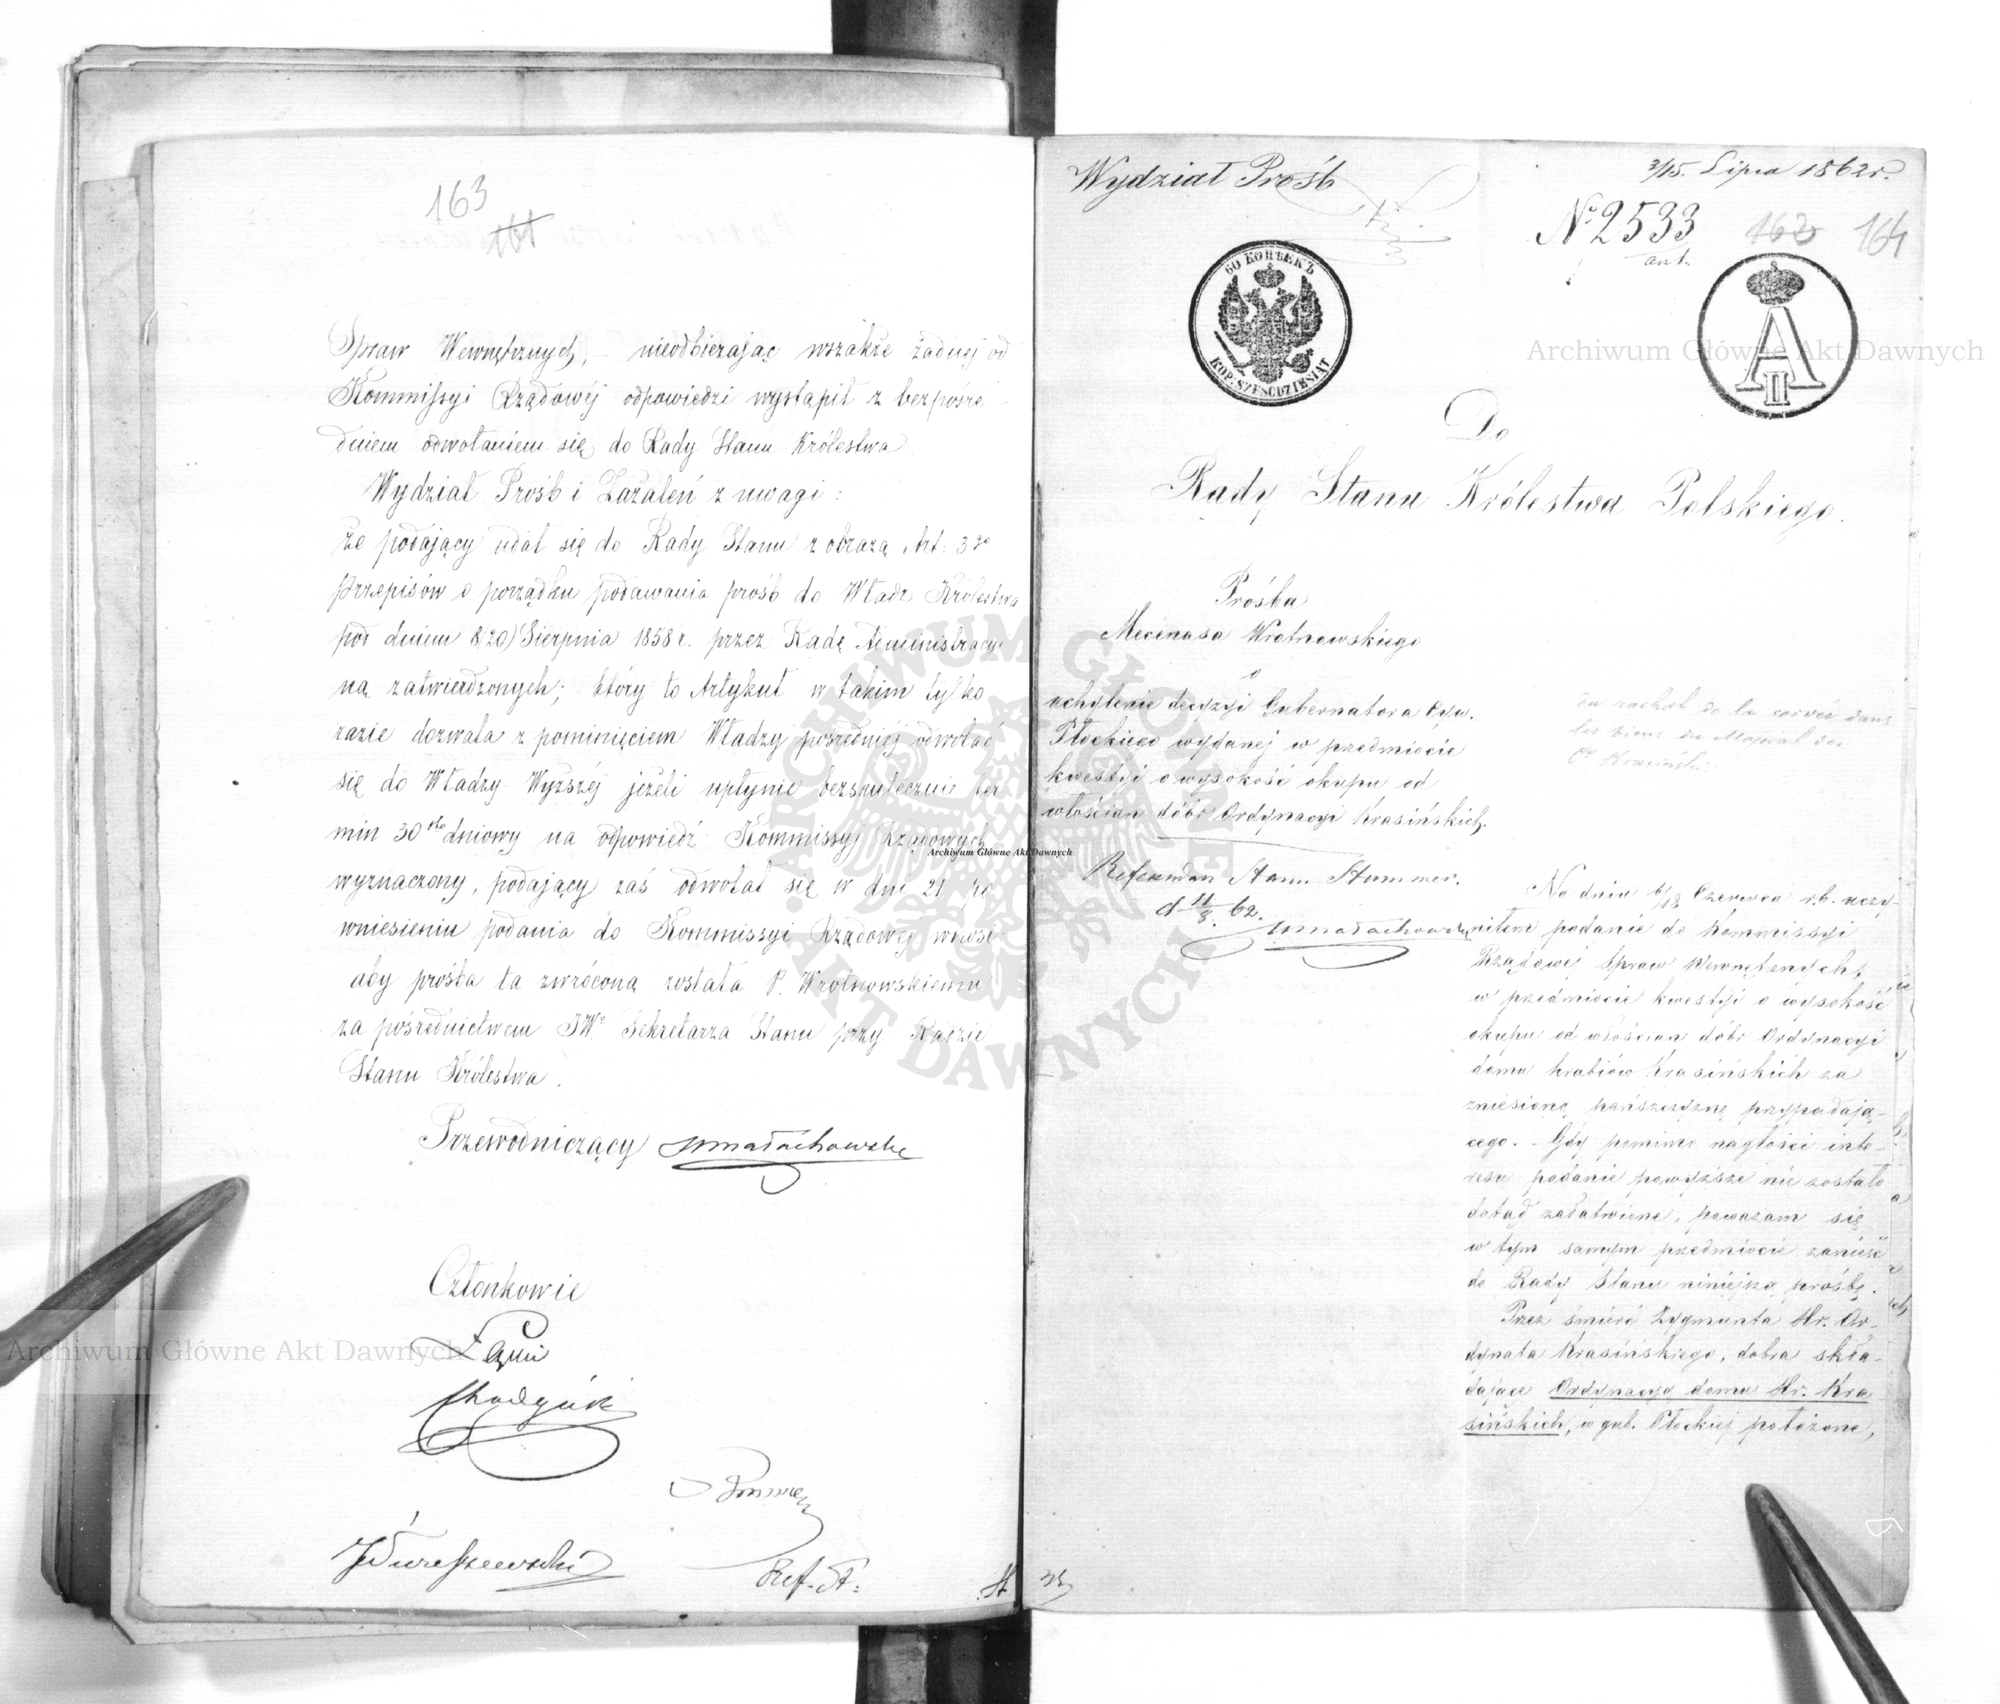 163
161
Spraw Wewnętrznych, nieodbierając wszakże żadnej od
Kommissyi Rządowéj odpowiedzi wystąpił z bezpośre-
dniem odwołaniem się do Rady Stanu Królestwa
Wydział Prośb i Zażaleń z uwagi:
że podający udał się do Rady Stanu z obrazą Art: 3go
Przepisów o porządku podawania prośb do Władz Królestwa
pod dniem 8/20) Sierpnia 1858 r. przez Radę Administracyj-
ną zatwierdzonych; który to Artykuł w takim tylko
razie dozwala z pominięciem Władzy pośredniéj odwołać
się do Władzy Wyższéj jeżeli upłynie bezskutecznie ter
min 30sto dniowy na odpowiedź Kommissyj Rządowych
wyznaczony, podający zaś odwołał się w dni 21 po
wniesieniu podania do Kommissyi Rządowéj wnosi
aby prośba ta zwróconą została P. Wrotnowskiemu
za pośrednictwem JWo Sekretarza Stanu przy Radzie
Stanu Królestwa.
Przewodniczący Małachowski
Członkowie
Ref. St:
Wydział Prośb
3/15. Lipca 1862 r.
No 2533
ant.
162 164
60 КОПѢЕКЪ
KOP. SZEŚĆDZIESIĄT
A II
Do
Rady Stanu Królestwa Polskiego.
Prośba
Mecenasa Wrotnowskiego
o
uchylenie decyzyi Gubernatora Cyw.
Płockiego wydanej w przedmiocie
kwestyi o wysokość okupu od
włościan dóbr Ordynacyi Krasińskich.
du rachat de la corvée dans
les biens du Majorat des
Cte Krasiński.
Referendarz Stanu Stummer.
d 11/8. 62.
Małachowski
Na dniu 6/18 Czerwca r.b. uczy-
niłem podanie do Kommissyi
Rządowej Spraw Wewnętznych,
w przedmiocie kwestyi o wysokość
okupu od włościan dóbr Ordynacyi
domu hrabiów Krasińskich za
zniesioną pańszczyznę przypadają-
cego. - Gdy pomimo nagłości inte-
resu podanie powyższe nie zostało
dotąd załatwione, poważam się
w tym samym przedmiocie zanieść
do Rady Stanu niniejszą prośbę.
Przez śmierć Zygmunta Hr. Or-
dynata Krasińskiego, dobra skła-
dające Ordynacyą domu Hr. Kra
sińskich, w gub. Płockiej położone,
Archiwum Główne Akt Dawnych
Archiwum Główne Akt Dawnych
Archiwum Główne Akt Dawnych
ARCHIWUM GŁÓWNE AKT DAWNYCH